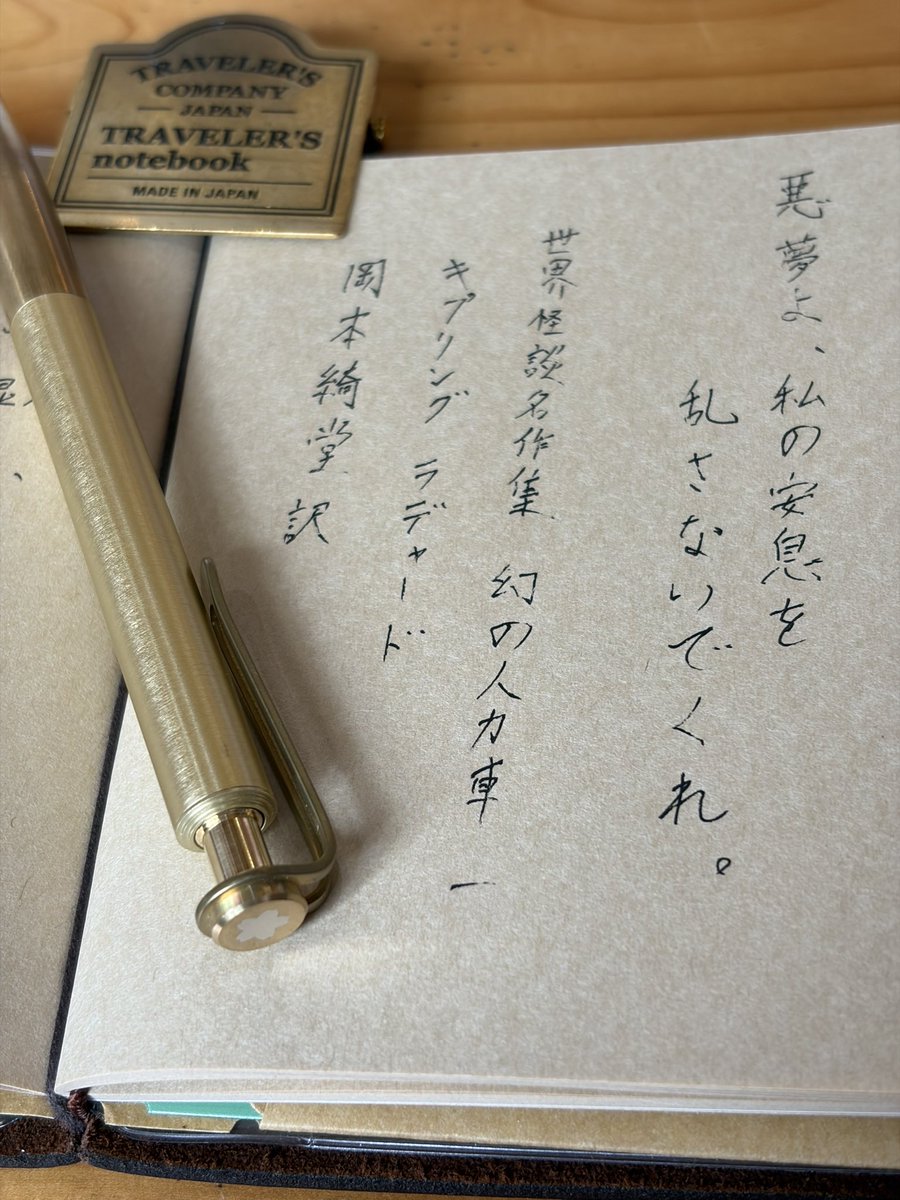 TRAVELER'S
COMPANY
JAPAN
TRAVELER'S
notebook
MADE IN JAPAN
悪夢よ、私の安息を
乱さないでくれ。
世界怪談名作集 幻の人力車 一
キプリング ラデャード
岡本綺堂 訳